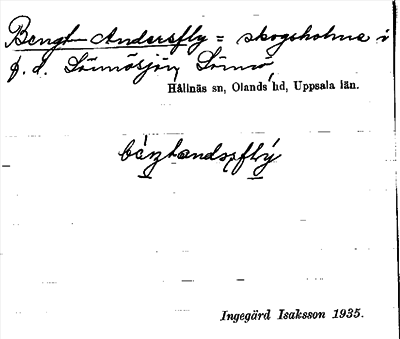 Bengt-Andersfly = skogsholme i
f. d. Sönnösjön, Sönnö
Hållnäs sn, Olands hd, Uppsala län.
Ingegärd Isaksson 1935.